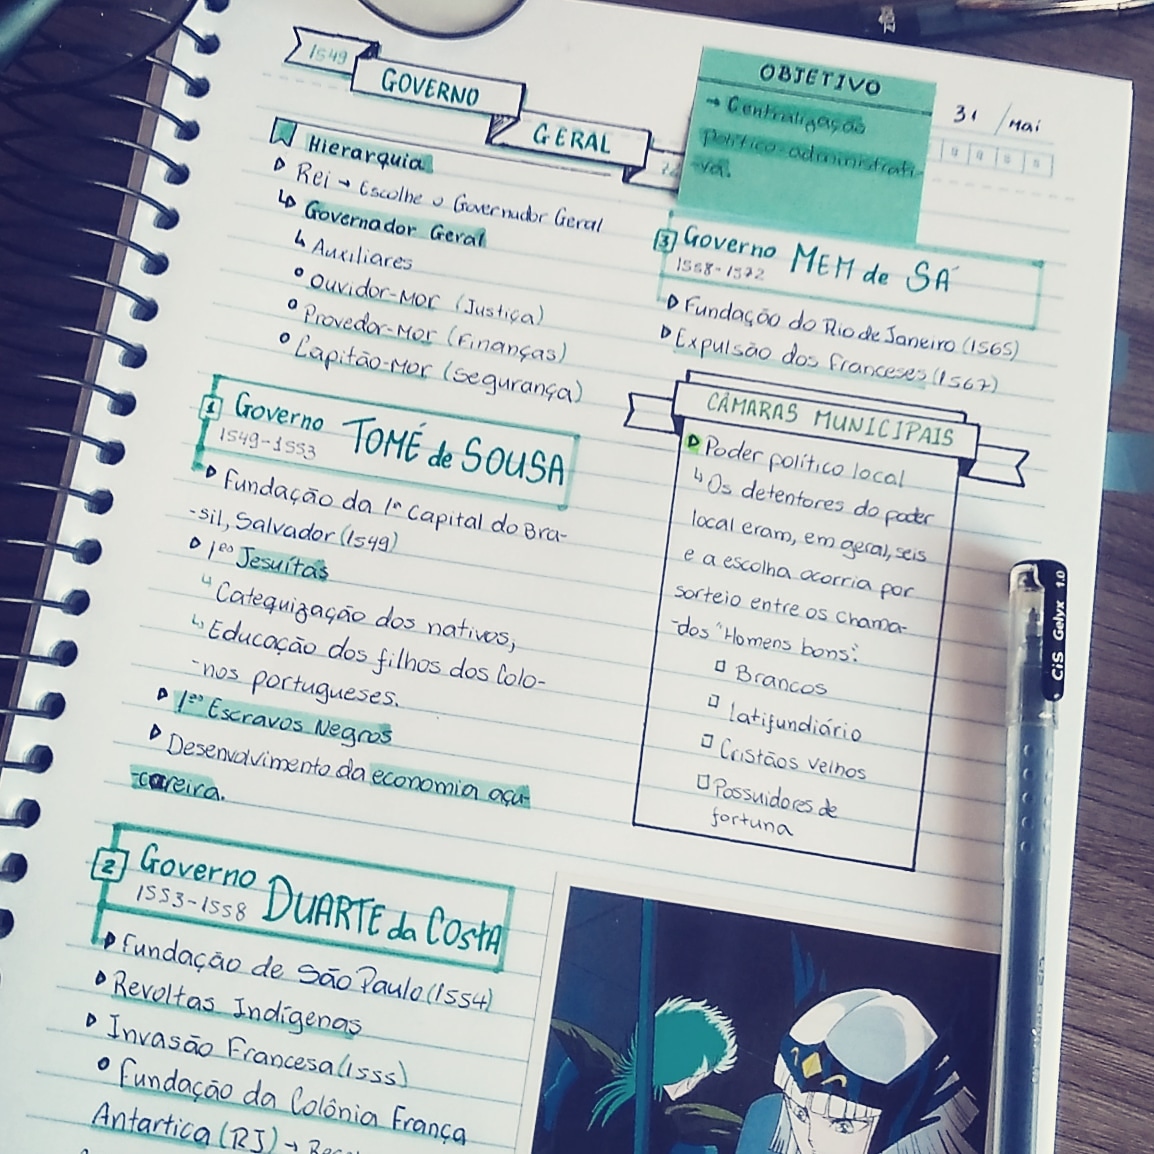 1549
GOVERNO
GERAL
Hierarquia
Rei → Escolhe o Governador Geral
↳ Governador Geral
↳ Auxiliares
Ouvidor-Mor (Justiça)
Provedor-Mor (Finanças)
Capitão-Mor (segurança)
1 Governo TOMÉ de SOUSA
1549-1553
Fundação da 1ª Capital do Bra-
-sil, Salvador (1549)
1ºs Jesuítas
↳ Catequização dos nativos,
↳ Educação dos filhos dos Colo-
-nos portugueses.
1ºs Escravos Negros
Desenvolvimento da economia açu-
-careira.
2 Governo DUARTE da COSTA
1553-1558
Fundação de São Paulo (1554)
Revoltas Indígenas
Invasão Francesa (1555)
Fundação da Colônia França
Antartica (RJ) →
OBJETIVO
→ Centralização
Político-administrati-
-va.
31 / Mai
3 Governo MEM de SÁ
1558-1572
Fundação do Rio de Janeiro (1565)
Expulsão dos Franceses (1567)
CÂMARAS MUNICIPAIS
Poder político local
↳ Os detentores do poder
local eram, em geral, seis
e a escolha ocorria por
sorteio entre os chama-
-dos "Homens bons":
Brancos
latifundiário
Cristãos velhos
Possuidores de
fortuna
CiS Gelyx 1.0